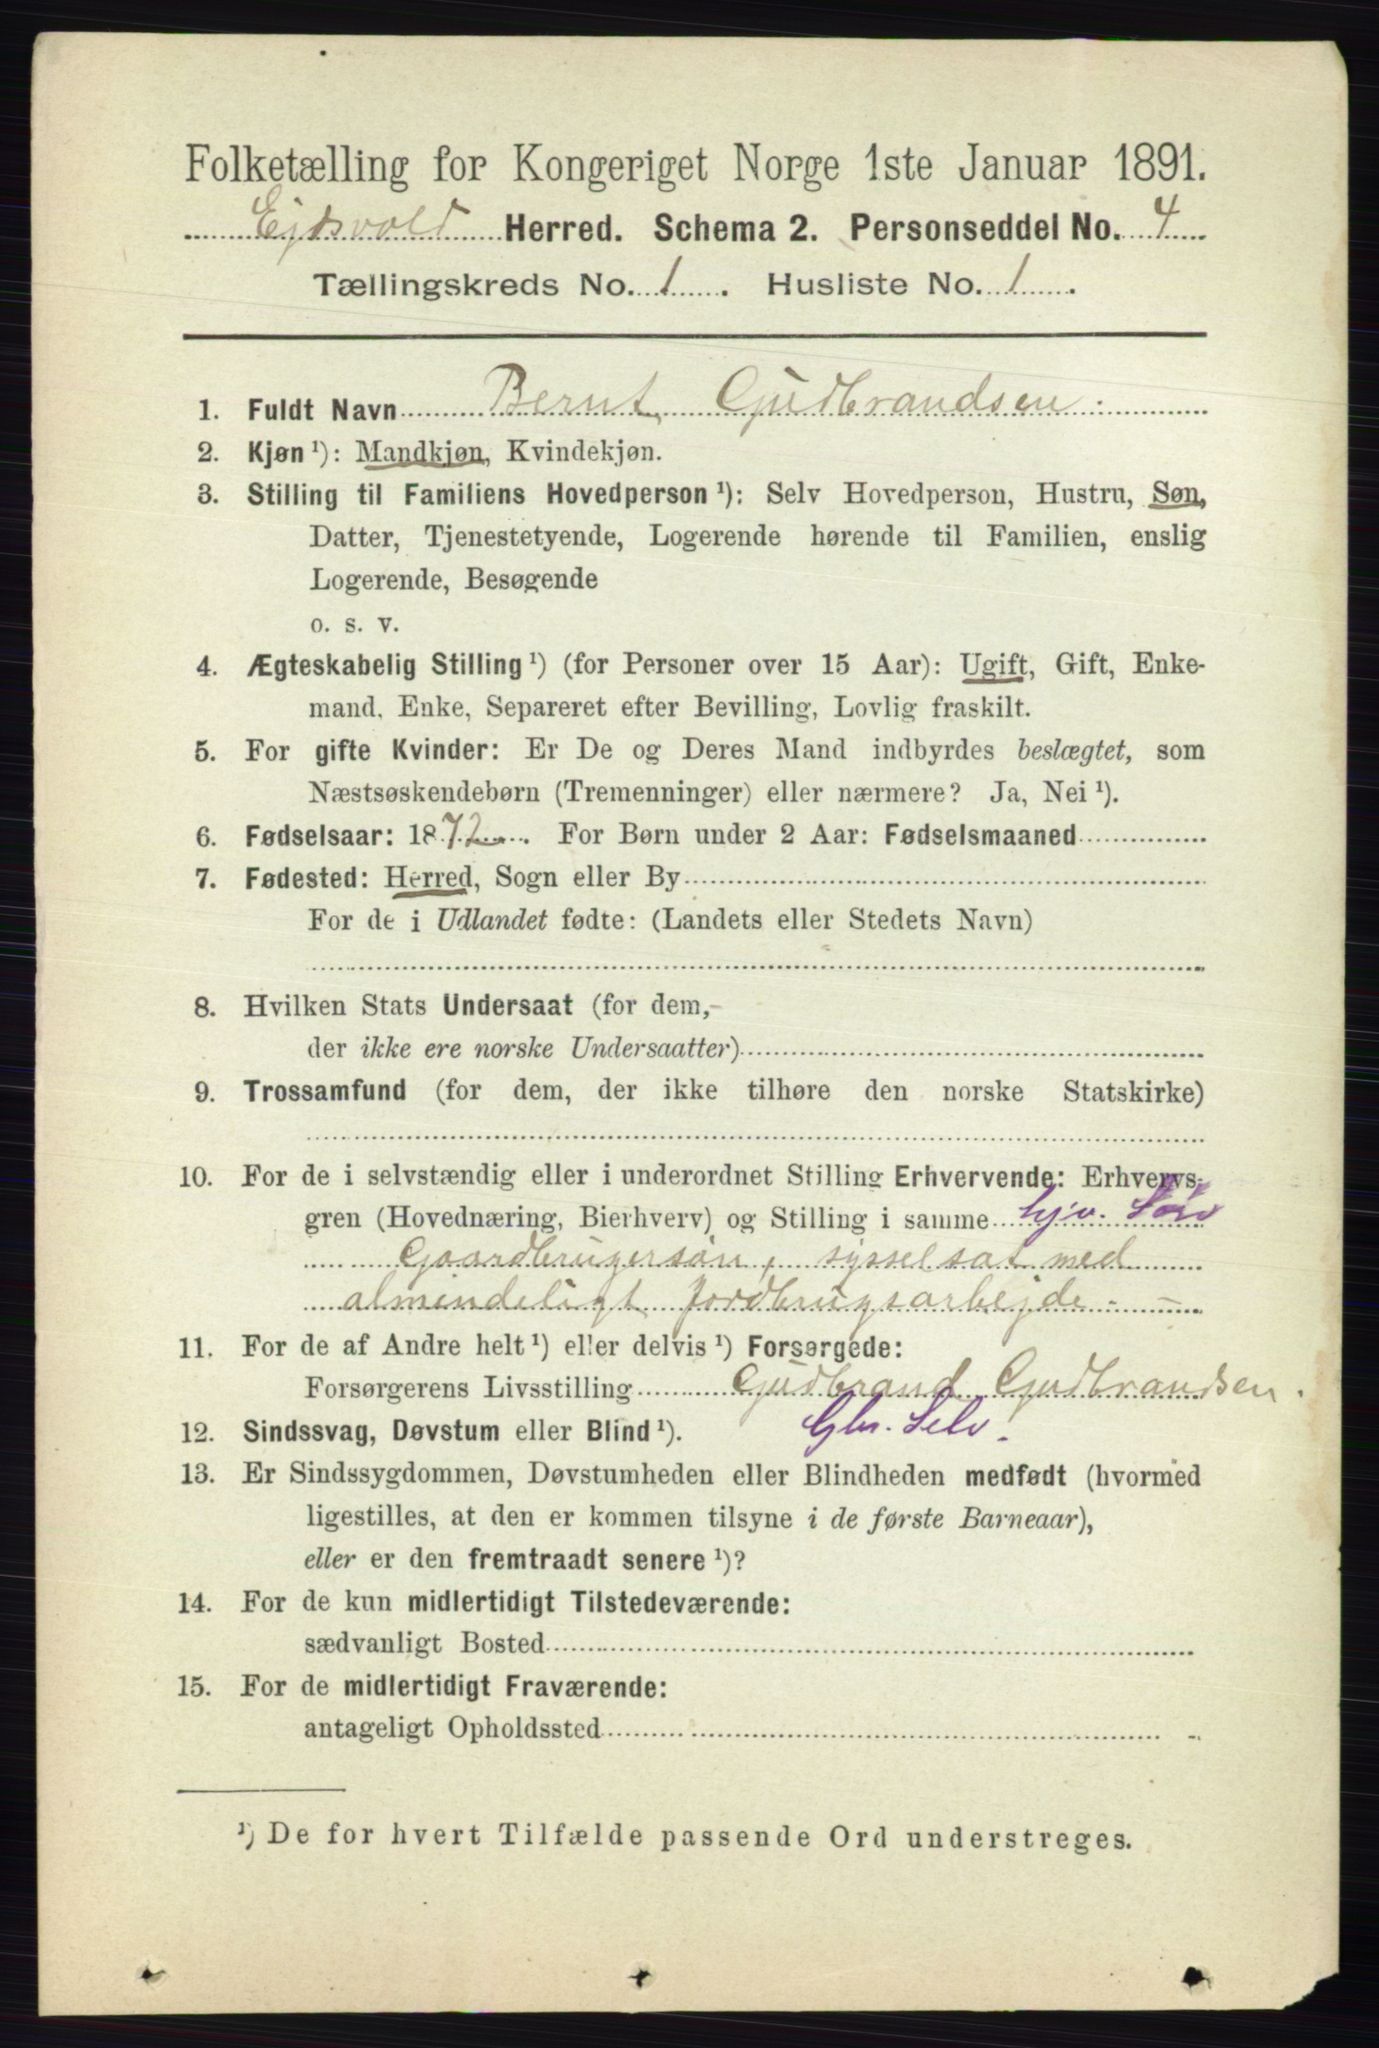 Folketælling for Kongeriget Norge 1ste Januar 1891.
Ejdsvold Herred. Schema 2. Personseddel No. 4
Tællingskreds No. 1. Husliste No. 1.
1. Fuldt Navn Bernt Gudbrandsen.
2. Kjøn ¹): Mandkjøn, Kvindekjøn.
3. Stilling til Familiens Hovedperson ¹): Selv Hovedperson, Hustru, Søn,
Datter, Tjenestetyende, Logerende hørende til Familien, enslig
Logerende, Besøgende
o. s. v.
4. Ægteskabelig Stilling ¹) (for Personer over 15 Aar): Ugift, Gift, Enke-
mand, Enke, Separeret efter Bevilling, Lovlig fraskilt.
5. For gifte Kvinder: Er De og Deres Mand indbyrdes beslægtet, som
Næstsøskendebørn (Tremenninger) eller nærmere? Ja, Nei ¹).
6. Fødselsaar: 1872. For Børn under 2 Aar: Fødselsmaaned
7. Fødested: Herred, Sogn eller By
For de i Udlandet fødte: (Landets eller Stedets Navn)
8. Hvilken Stats Undersaat (for dem,
der ikke ere norske Undersaatter)
9. Trossamfund (for dem, der ikke tilhøre den norske Statskirke)
10. For de i selvstændig eller i underordnet Stilling Erhvervende: Erhvervs-
gren (Hovednæring, Bierhverv) og Stilling i samme
Gaardbrugersøn, sysselsat med
almindeligt Jordbrugsarbejde. -
11. For de af Andre helt ¹) eller delvis ¹) Forsørgede:
Forsørgerens Livsstilling Gudbrand Gudbrandsen.
12. Sindssvag, Døvstum eller Blind ¹). Gbr. Selv.
13. Er Sindssygdommen, Døvstumheden eller Blindheden medfødt (hvormed
ligestilles, at den er kommen tilsyne i de første Barneaar),
eller er den fremtraadt senere ¹)?
14. For de kun midlertidigt Tilstedeværende:
sædvanligt Bosted
15. For de midlertidigt Fraværende:
antageligt Opholdssted
¹) De for hvert Tilfælde passende Ord understreges.